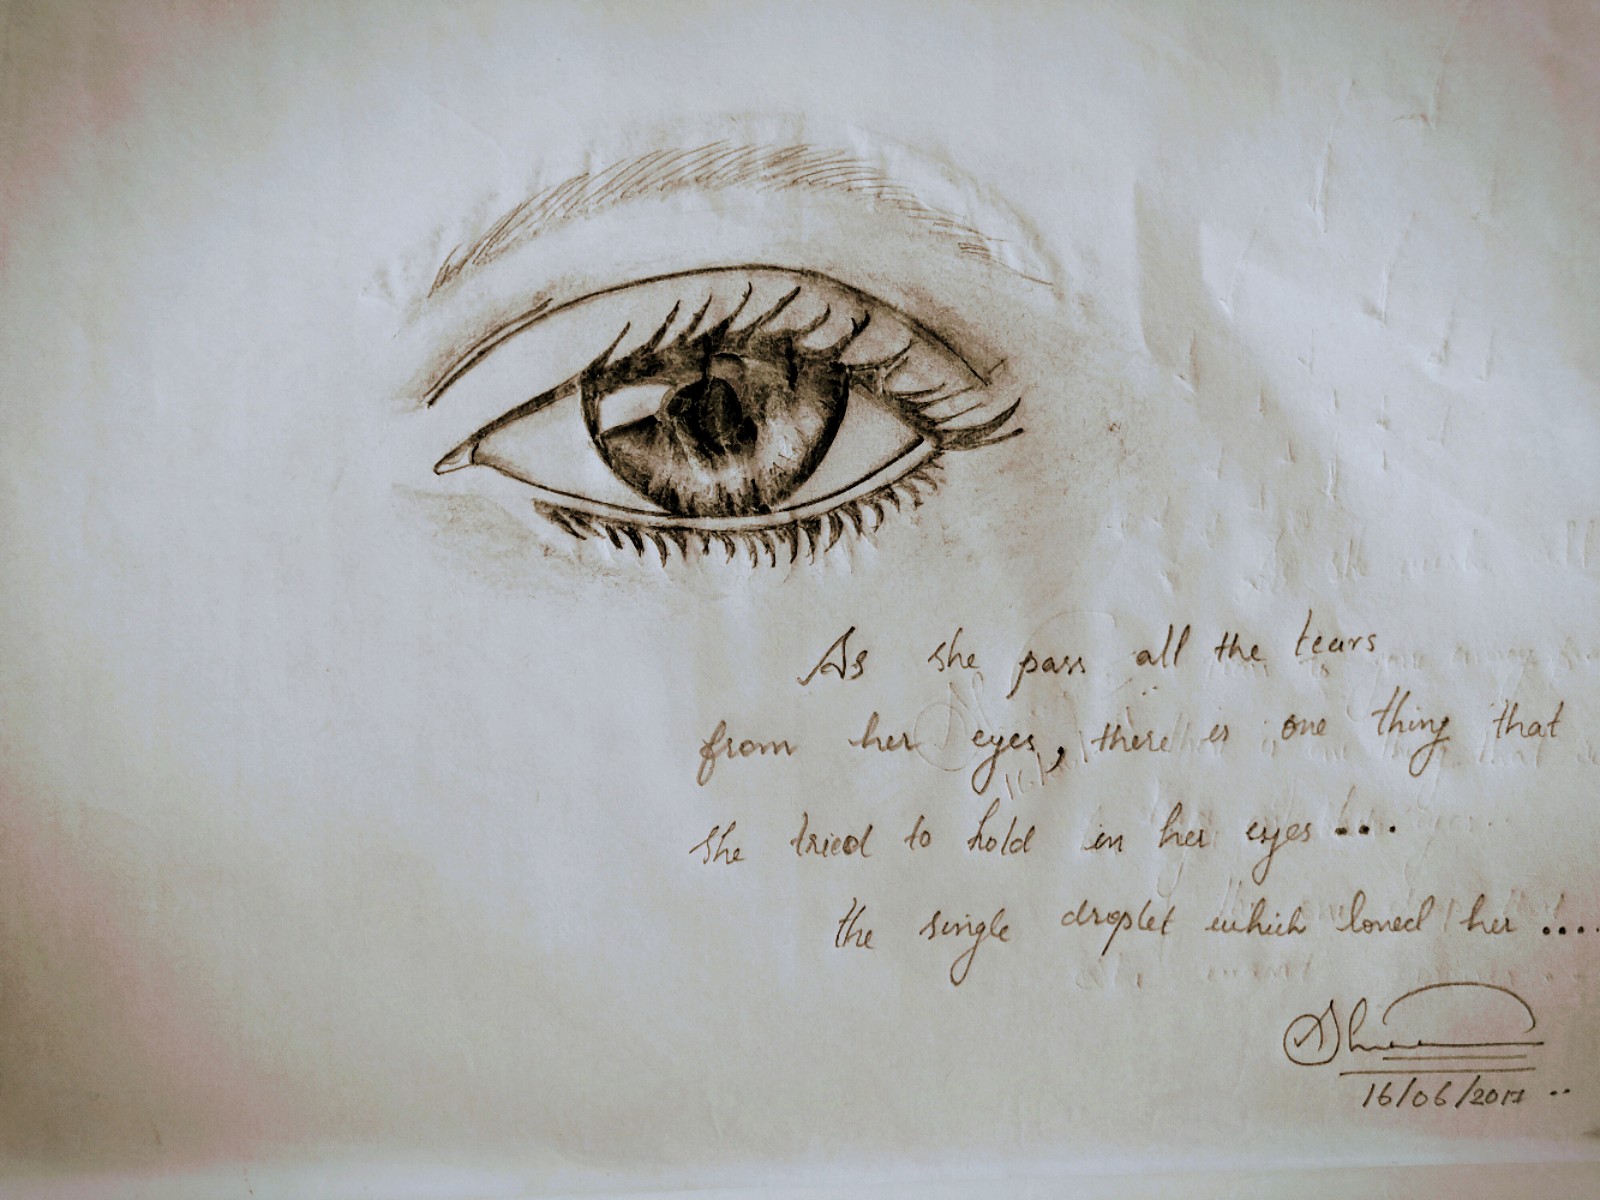 As she pass all the tears
from her eyes, there is one thing that
she tried to hold in her eyes ...
the single droplet which loved her ....
16/06/2017 ..